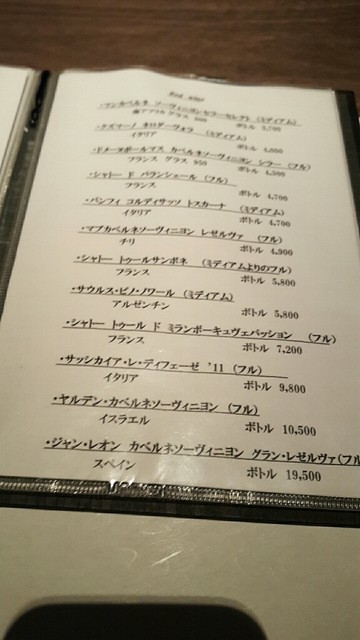 Red wine
・マンカベルネ ソーヴィニヨンセラーセレクト (ミディアム)
南アフリカ グラス 600 ボトル 3,700
・クズマーノ ネロダーヴォラ (ミディアム)
イタリア ボトル 4,000
・ドメーヌポールマス カベルネソーヴィニヨン シラー (フル)
フランス グラス 950 ボトル 4,500
・シャトー ド パランシェール (フル)
フランス ボトル 4,700
・バンフィ コルディサッソ トスカーナ (ミディアム)
イタリア ボトル 4,700
・マプカベルネソーヴィニヨン レゼルヴァ (フル)
チリ ボトル 4,900
・シャトー トゥールサンボネ (ミディアムよりのフル)
フランス ボトル 5,800
・サウルス・ピノ・ノワール (ミディアム)
アルゼンチン ボトル 5,800
・シャトー トゥール ド ミランボーキュヴェパッション (フル)
フランス ボトル 7,200
・サッシカイア・レ・ディフェーゼ '11 (フル)
イタリア ボトル 9,800
・ヤルデン・カベルネソーヴィニヨン (フル)
イスラエル ボトル 10,500
・ジャン・レオン カベルネソーヴィニヨン グラン・レゼルヴァ(フル
スペイン ボトル 19,500